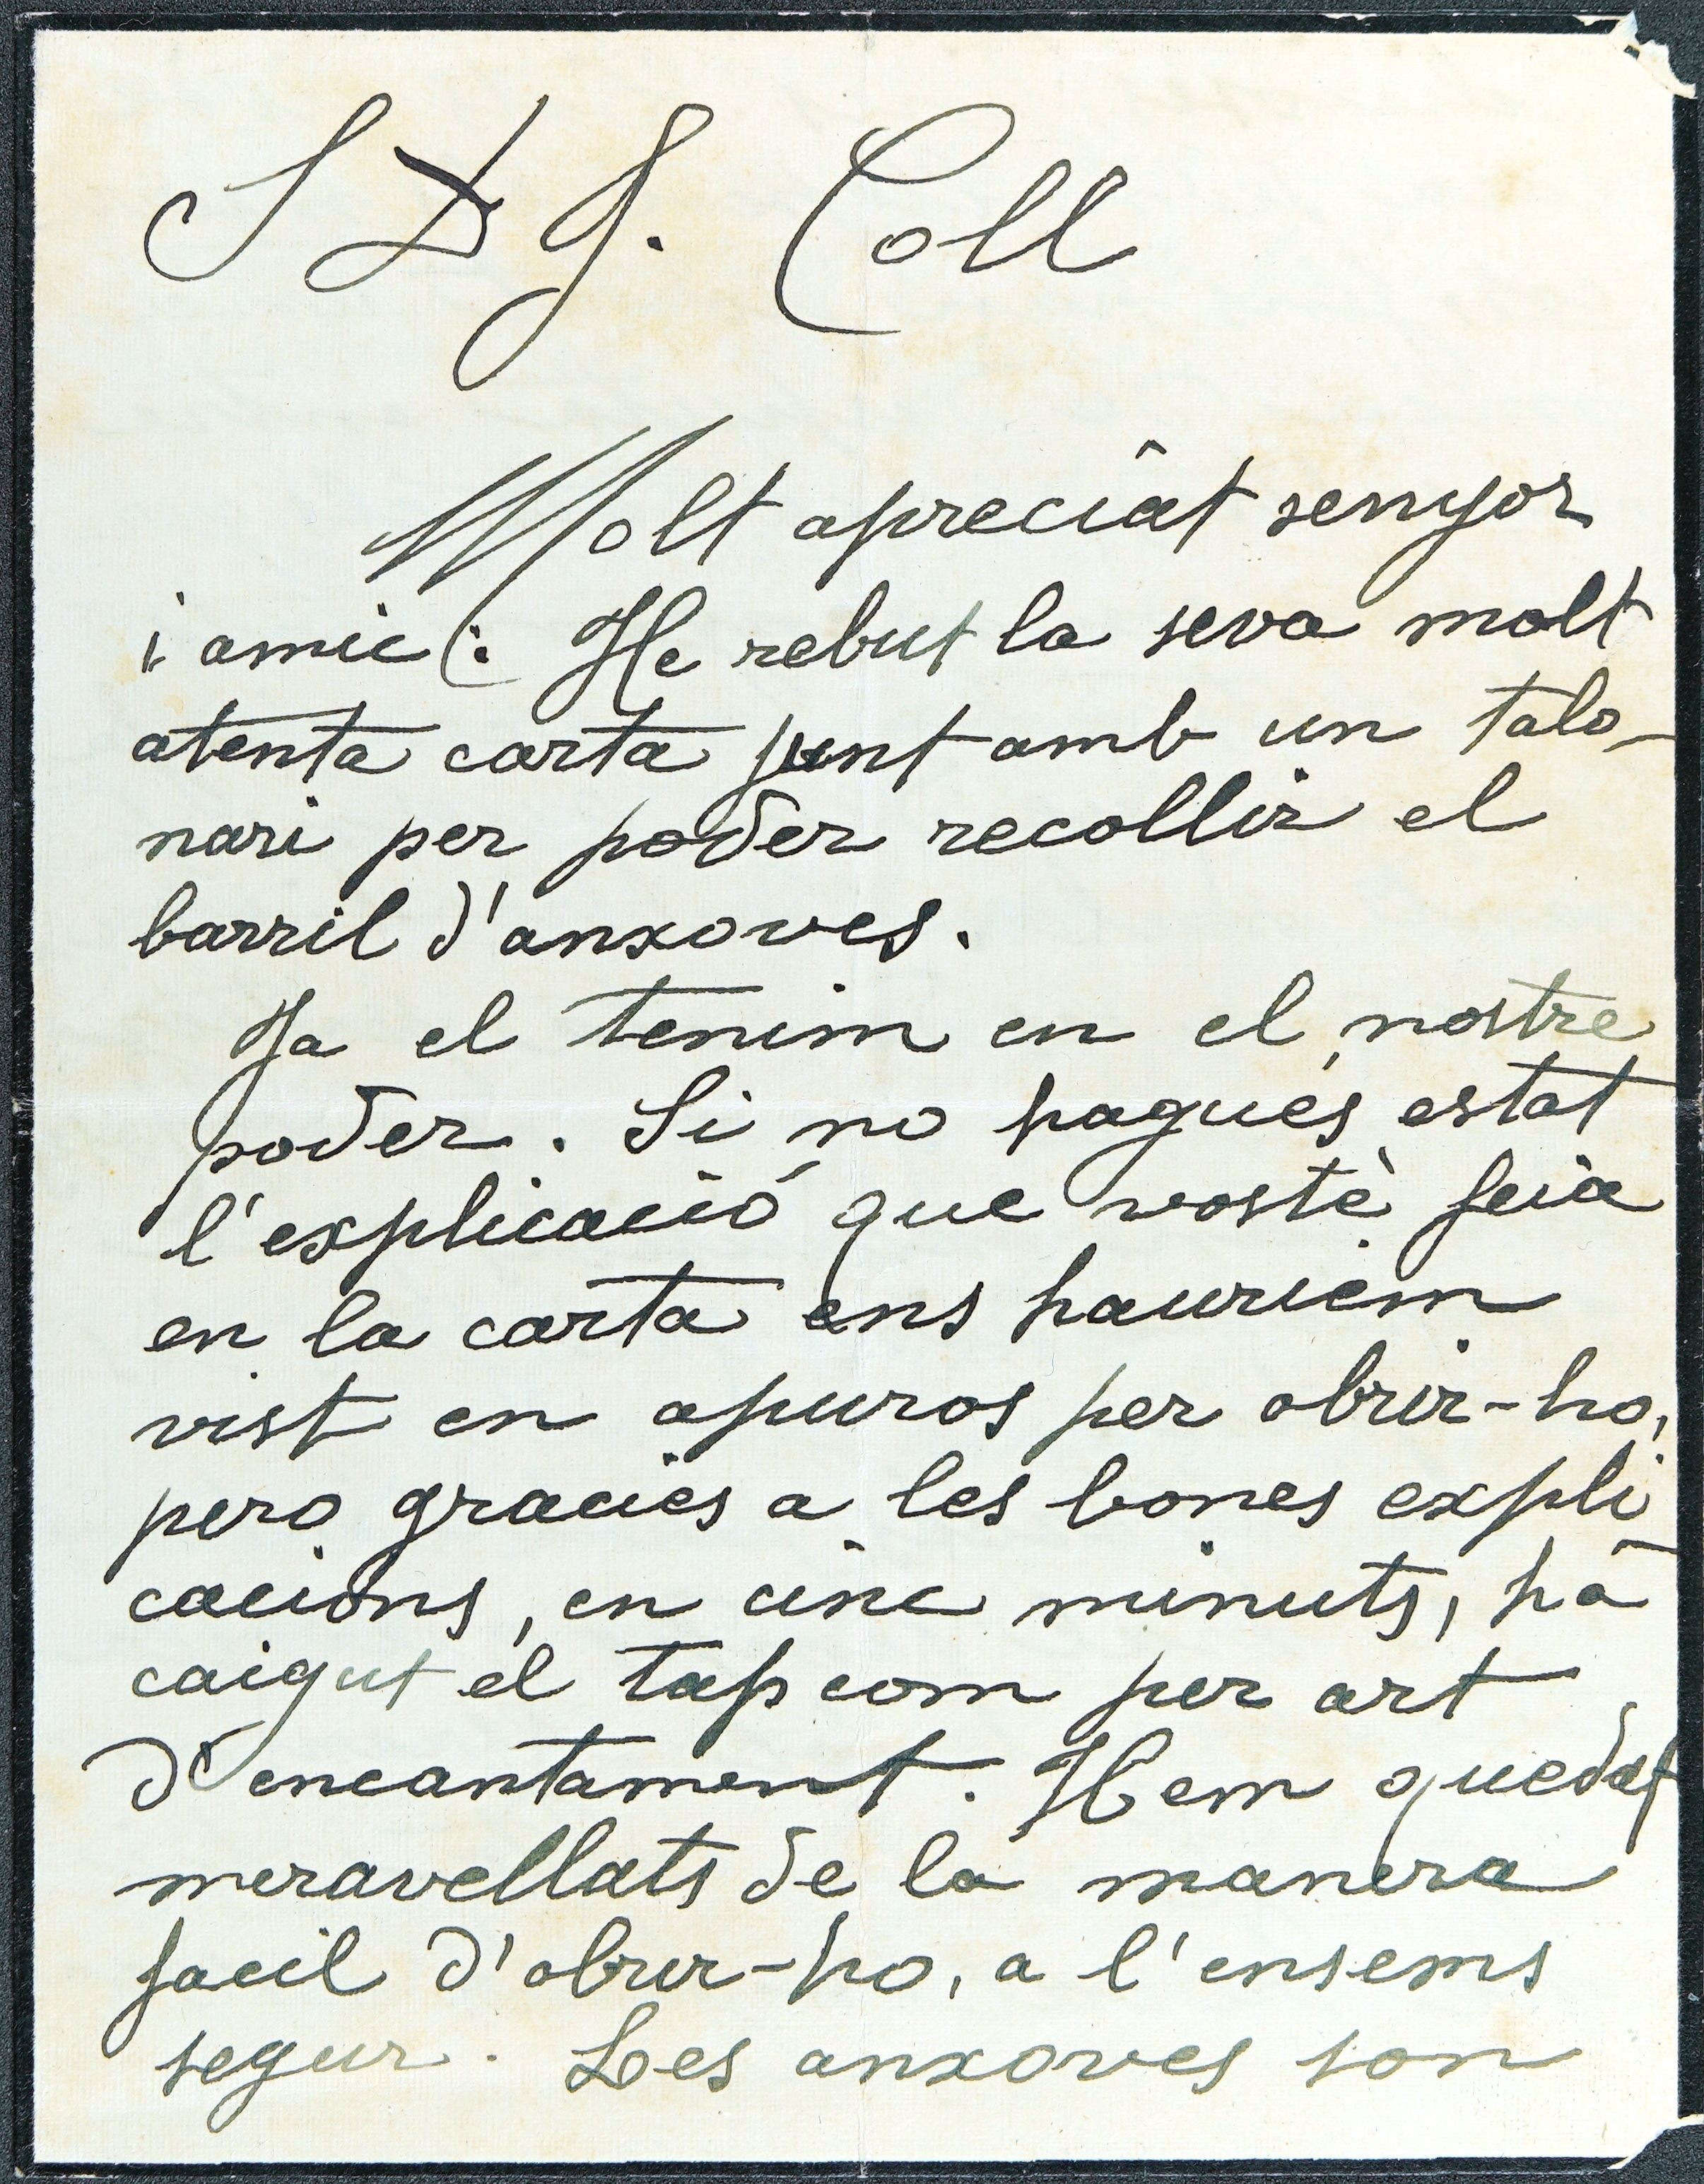 S D J. Coll
Molt apreciat senyor
i amic: He rebut la seva molt
atenta carta junt amb un talo-
nari per poder recollir el
barril d'anxoves.
Ja el tenim en el nostre
poder. Si no hagués estat
l'explicació que vostè feia
en la carta ens hauriem
vist en apuros per obrir-ho,
pero gracies a les bones expli-
cacions, en cinc minuts, ha
caigut el tap com per art
d'encantament. Hem quedat
meravellats de la manera
facil d'obrir-ho, a l'ensems
segur. Les anxoves son